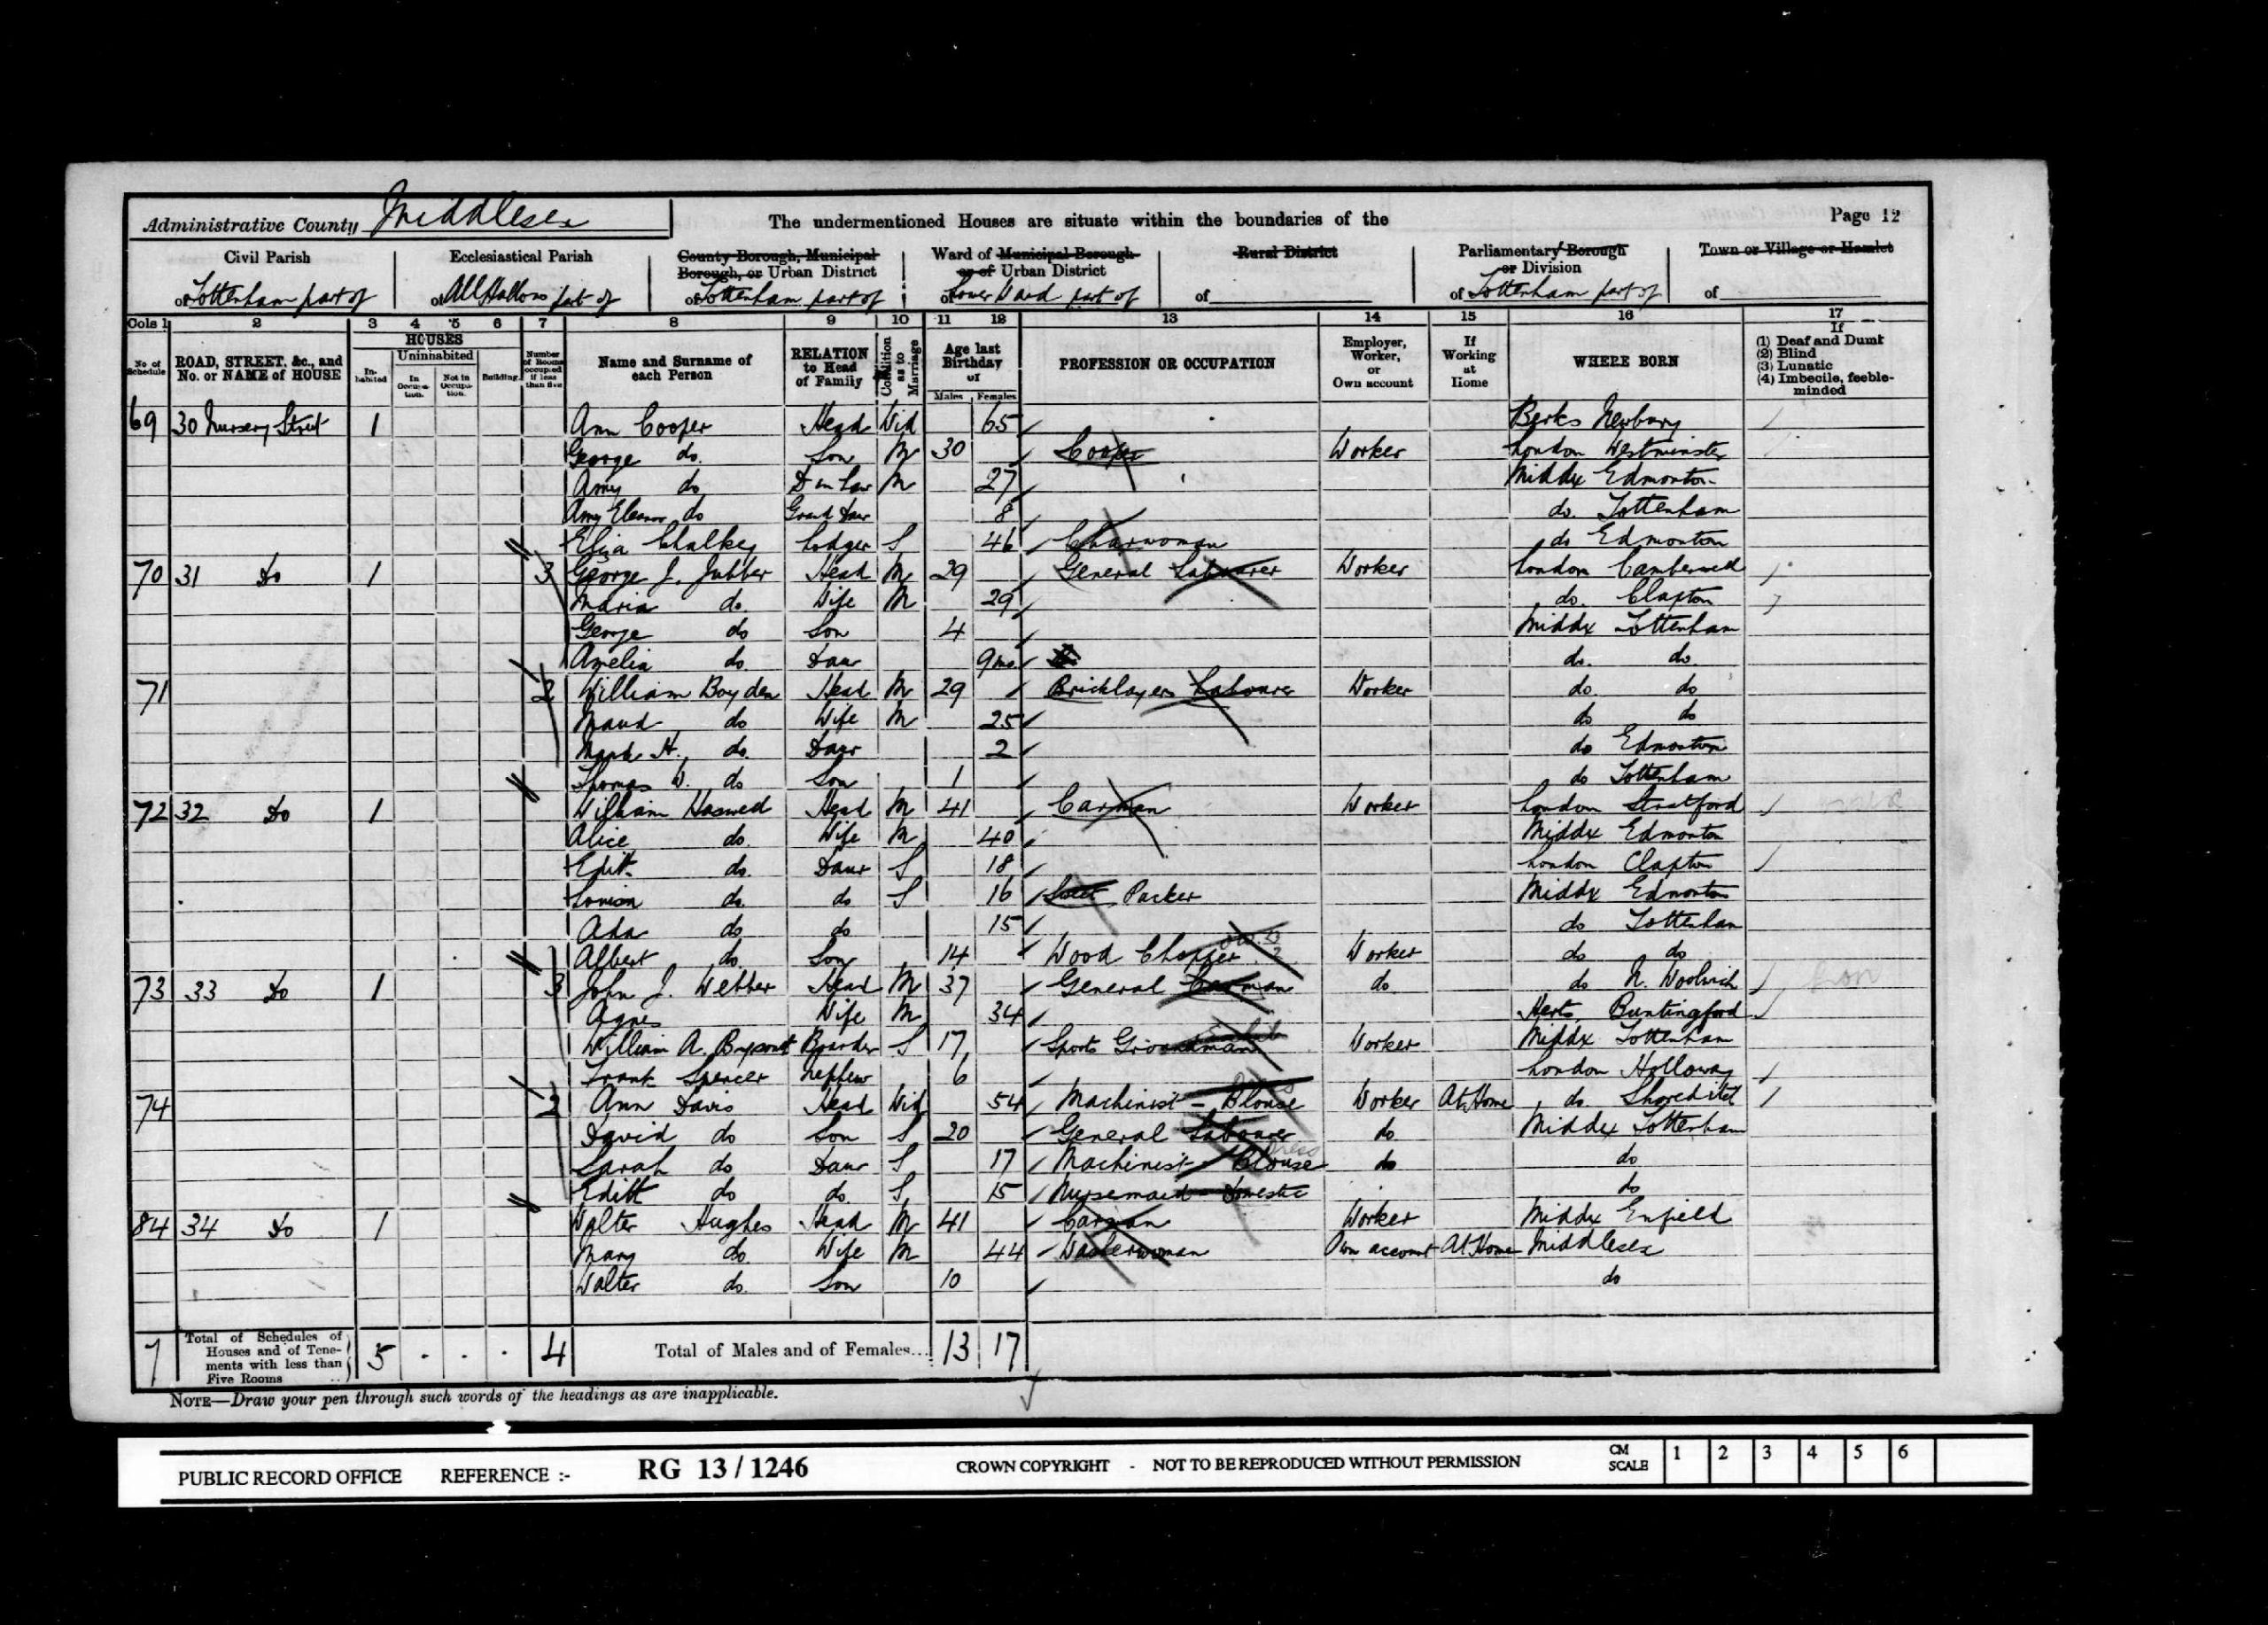 Page 12
Administrative County Middlesex The undermentioned Houses are situate within the boundaries of the
Civil Parish Ecclesiastical Parish County Borough, Municipal Borough, or Urban District Ward of Municipal Borough or of Urban District Rural District Parliamentary Borough or Division Town or Village or Hamlet
of Tottenham part of of All Hallows part of of Tottenham part of of Lower Ward part of of of Tottenham part of of
Cols 1 2 3 4 5 6 7 8 9 10 11 12 13 14 15 16 17
No of Schedule ROAD, STREET, &c., and No. or NAME of HOUSE HOUSES Inhabited Uninhabited In Occupation. Not in Occupation. Building Number of Rooms occupied if less than five Name and Surname of each Person RELATION to Head of Family Condition as to Marriage Age last Birthday of Males Females PROFESSION OR OCCUPATION Employer, Worker, or Own account If Working at Home WHERE BORN If (1) Deaf and Dumb (2) Blind (3) Lunatic (4) Imbecile, feeble-minded
69 30 Nursery Street 1 Ann Cooper Head Wid 65 Berks Newbury
George do. Son M 30 Cooper Worker London Westminster
Amy do D in Law M 27 Middx Edmonton
Amy Eleanor do Grand Daur 8 do. Tottenham
Eliza Chalkey Lodger S 46 Charwoman do Edmonton
70 31 Do 1 3 George J. Jubber Head M 29 General Labourer Worker London Camberwell
Maria do. Wife M 29 do. Clapton
George do Son 4 Middx Tottenham
Amelia do. Daur 9mo. do. do.
71 2 William Boyden Head M 29 Bricklayers Labourer Worker do. do
Maud do Wife M 25 do do
Maud H. do. Daur 2 do Edmonton
Thomas W. do Son 1 do Tottenham
72 32 Do 1 William Haswell Head M 41 Carman Worker London Stratford
Alice do. Wife M 40 Middx Edmonton
Edith do. Daur S 18 London Clapton
Louisa do. do S 16 Sweet Packer Middx Edmonton
Ada do do 15 do Tottenham
Albert do. Son 14 Wood Chopper Worker do do
73 33 Do 1 3 John J. Webber Head M 37 General Carman do. do N. Woolwich
Agnes Wife M 34 Herts, Buntingford
William A. Boarder S 17 Sports Groundman Worker Middx Tottenham
Frank Spencer Nephew 6 London Holloway
74 2 Ann Davis Head Wid 54 Machinist - Blouse Worker At Home do. Shoreditch
David do Son S 20 General Labourer do Middx Tottenham
Sarah do Daur S 17 Machinist - Blouse do do
Edith do do. S 15 Nursemaid - Domestic do
84 34 Do 1 Walter Hughes Head M 41 Carman Worker Middx Enfield
Mary do. Wife M 44 Washerwoman Own account At Home Middlesex
Walter do. Son 10 do
7 Total of Schedules of Houses and of Tenements with less than Five Rooms 5 - - - 4 Total of Males and of Females... 13 17
NOTE—Draw your pen through such words of the headings as are inapplicable.
PUBLIC RECORD OFFICE REFERENCE :- RG 13 / 1246 CROWN COPYRIGHT - NOT TO BE REPRODUCED WITHOUT PERMISSION CM SCALE 1 2 3 4 5 6